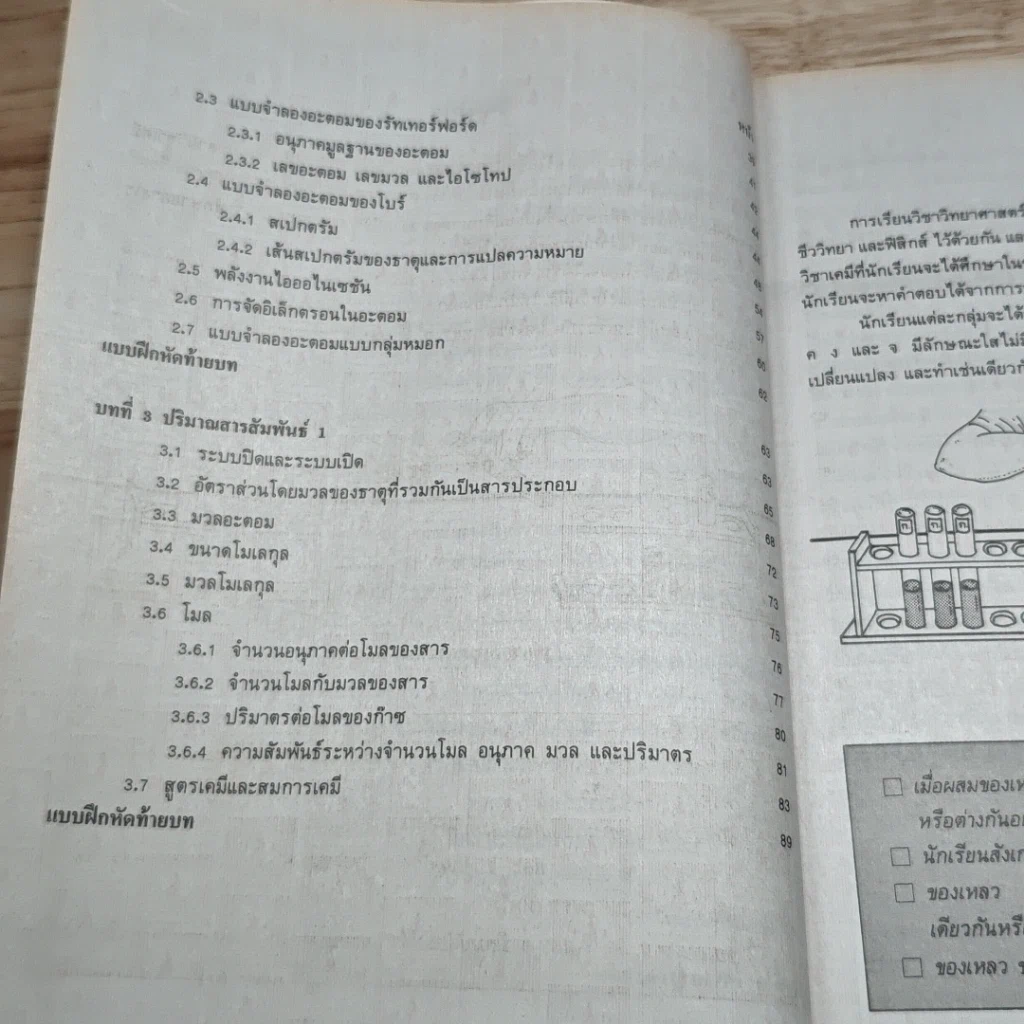 หน้า
2.3 แบบจำลองอะตอมของรัทเทอร์ฟอร์ด
2.3.1 อนุภาคมูลฐานของอะตอม
2.3.2 เลขอะตอม เลขมวล และไอโซโทป
2.4 แบบจำลองอะตอมของโบร์
2.4.1 สเปกตรัม
2.4.2 เส้นสเปกตรัมของธาตุและการแปลความหมาย
2.5 พลังงานไอออไนเซชัน
2.6 การจัดอิเล็กตรอนในอะตอม
2.7 แบบจำลองอะตอมแบบกลุ่มหมอก
แบบฝึกหัดท้ายบท 62
บทที่ 3 ปริมาณสารสัมพันธ์ 1 63
3.1 ระบบปิดและระบบเปิด 63
3.2 อัตราส่วนโดยมวลของธาตุที่รวมกันเป็นสารประกอบ 65
3.3 มวลอะตอม 68
3.4 ขนาดโมเลกุล 72
3.5 มวลโมเลกุล 73
3.6 โมล 75
3.6.1 จำนวนอนุภาคต่อโมลของสาร 76
3.6.2 จำนวนโมลกับมวลของสาร 77
3.6.3 ปริมาตรต่อโมลของก๊าซ 80
3.6.4 ความสัมพันธ์ระหว่างจำนวนโมล อนุภาค มวล และปริมาตร 81
3.7 สูตรเคมีและสมการเคมี 83
แบบฝึกหัดท้ายบท 89
การเรียนวิชาวิทยาศาสตร์
ชีววิทยา และฟิสิกส์ ไว้ด้วยกัน
วิชาเคมีที่นักเรียนจะได้ศึกษาใน
นักเรียนจะหาคำตอบได้จากการ
นักเรียนแต่ละกลุ่มจะได้
ค ง และ จ มีลักษณะใสไม่
เปลี่ยนแปลง และทำเช่นเดียว
เมื่อผสมของ
หรือต่างกัน
นักเรียนสังเก
ของเหลว
เดียวกันหรือ
ของเหลว